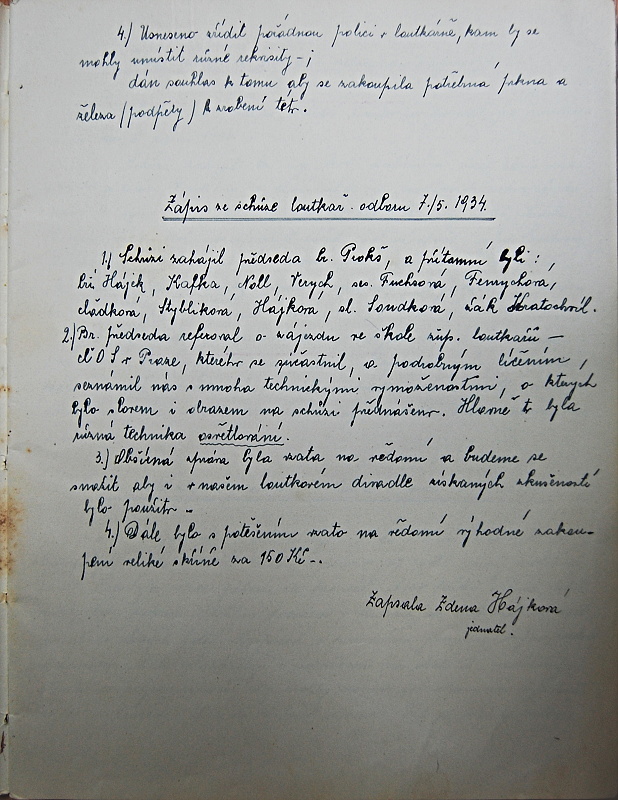 4.) Usneseno zřídit pořádnou polici v loutkárně, kam by se
mohly umístit různé rekvisity -;
dán souhlas k tomu aby se zakoupila potřebná prkna a
železa (podpěry) k zrobení
Zápis ze schůze loutkař. odboru 7./5. 1934.
1.) Schůzi zahájil předseda br. Prokš, a přítomní byli:
bří Hájek, Kafka, Noll, Verych, ses. Fuchsová, Femychora,
Styblíková, Hájková, sl. Soudková, žák Kratochvíl.
2.) Br. předseda referoval o zájezdu ve škole žup. loutkářů –
ČOS v Praze, kterého se zúčastnil, a podrobným líčením,
seznámil nás s mnoha technickými vymoženostmi, o kterých
bylo slovem i obrazem na schůzi přednášeno. Hlavně to byla
různá technika osvětlování.
3.) Obšírná zpráva byla vzata na vědomí a budeme se
snažit aby i v našem loutkovém divadle získaných zkušeností
bylo použito –
4.) Dále bylo s potěšením vzato na vědomí výhodné zakou-
pení veliké skříně za 150 Kč –.
Zapsala Zdena Hájková
jednatel.